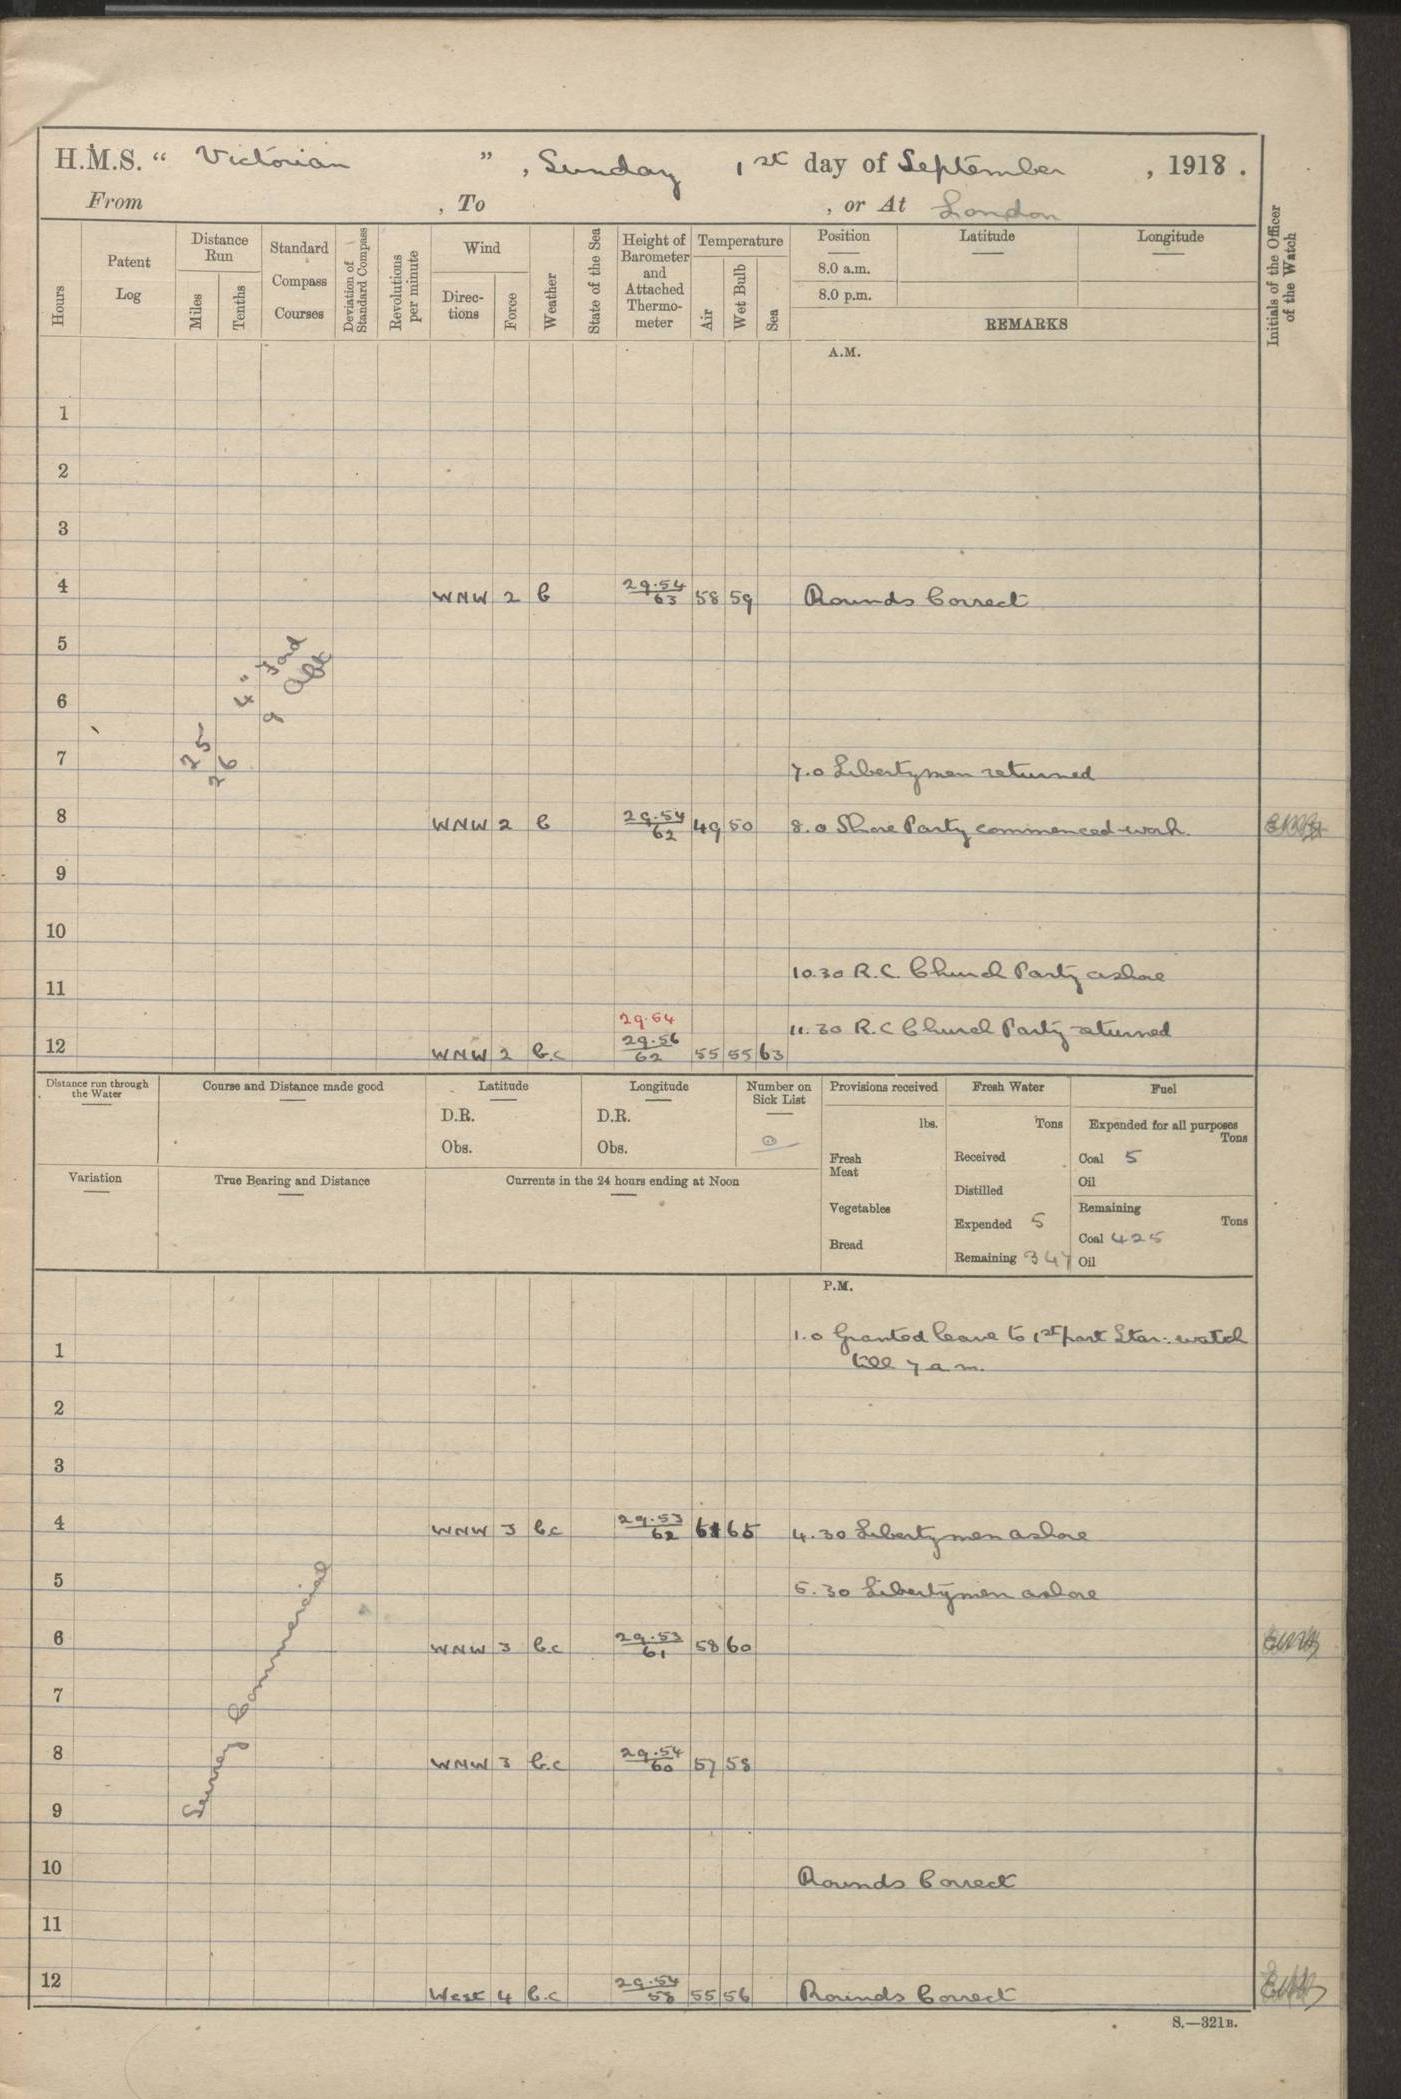 H.M.S. “ Victorian ” , Sunday 1st day of September , 1918 .
From , To , or At London
Hours
Patent Log
Distance Run
Miles
Tenths
Standard Compass Courses
Deviation of Standard Compass
Revolutions per minute
Wind
Directions
Force
Weather
State of the Sea
Height of Barometer and Attached Thermometer
Temperature
Air
Wet Bulb
Sea
Position
8.0 a.m.
8.0 p.m.
Latitude
Longitude
REMARKS
Initials of the Officer of the Watch
A.M.
1
2
3
4 WNW 2 b 29.54/63 58 59 Rounds Correct
5
6
25 4" Ford
26 9 Abt
7 7.0 Libertymen returned
8 WNW 2 b 29.54/62 49 50 8.0 Shore Party commenced work.
9
10
10.30 R.C. Church Party ashore
11
29.64
11.30 R.C Church Party returned
12 WNW 2 b.c 29.56/62 55 55 63
Distance run through the Water
Course and Distance made good
Latitude
D.R.
Obs.
Longitude
D.R.
Obs.
Number on Sick List
0
Provisions received
lbs.
Fresh Meat
Vegetables
Bread
Fresh Water
Tons
Received
Distilled
Expended 5
Remaining 347
Fuel
Expended for all purposes
Tons
Coal 5
Oil
Remaining
Tons
Coal 425
Oil
Variation
True Bearing and Distance
Currents in the 24 hours ending at Noon
P.M.
1.0 Granted leave to 1st part Star: watch
1 till 7 a.m.
2
3
4 WNW 3 b.c 29.53/62 65 4.30 Libertymen ashore
5 5.30 Libertymen ashore
6 WNW 3 b.c 29.53/61 58 60
7
Surrey Commercial
8 WNW 3 b.c 29.54/60 57 58
9
10 Rounds Correct
11
12 West 4 b.c 29.54/58 55 56 Rounds Correct
S.—321B.